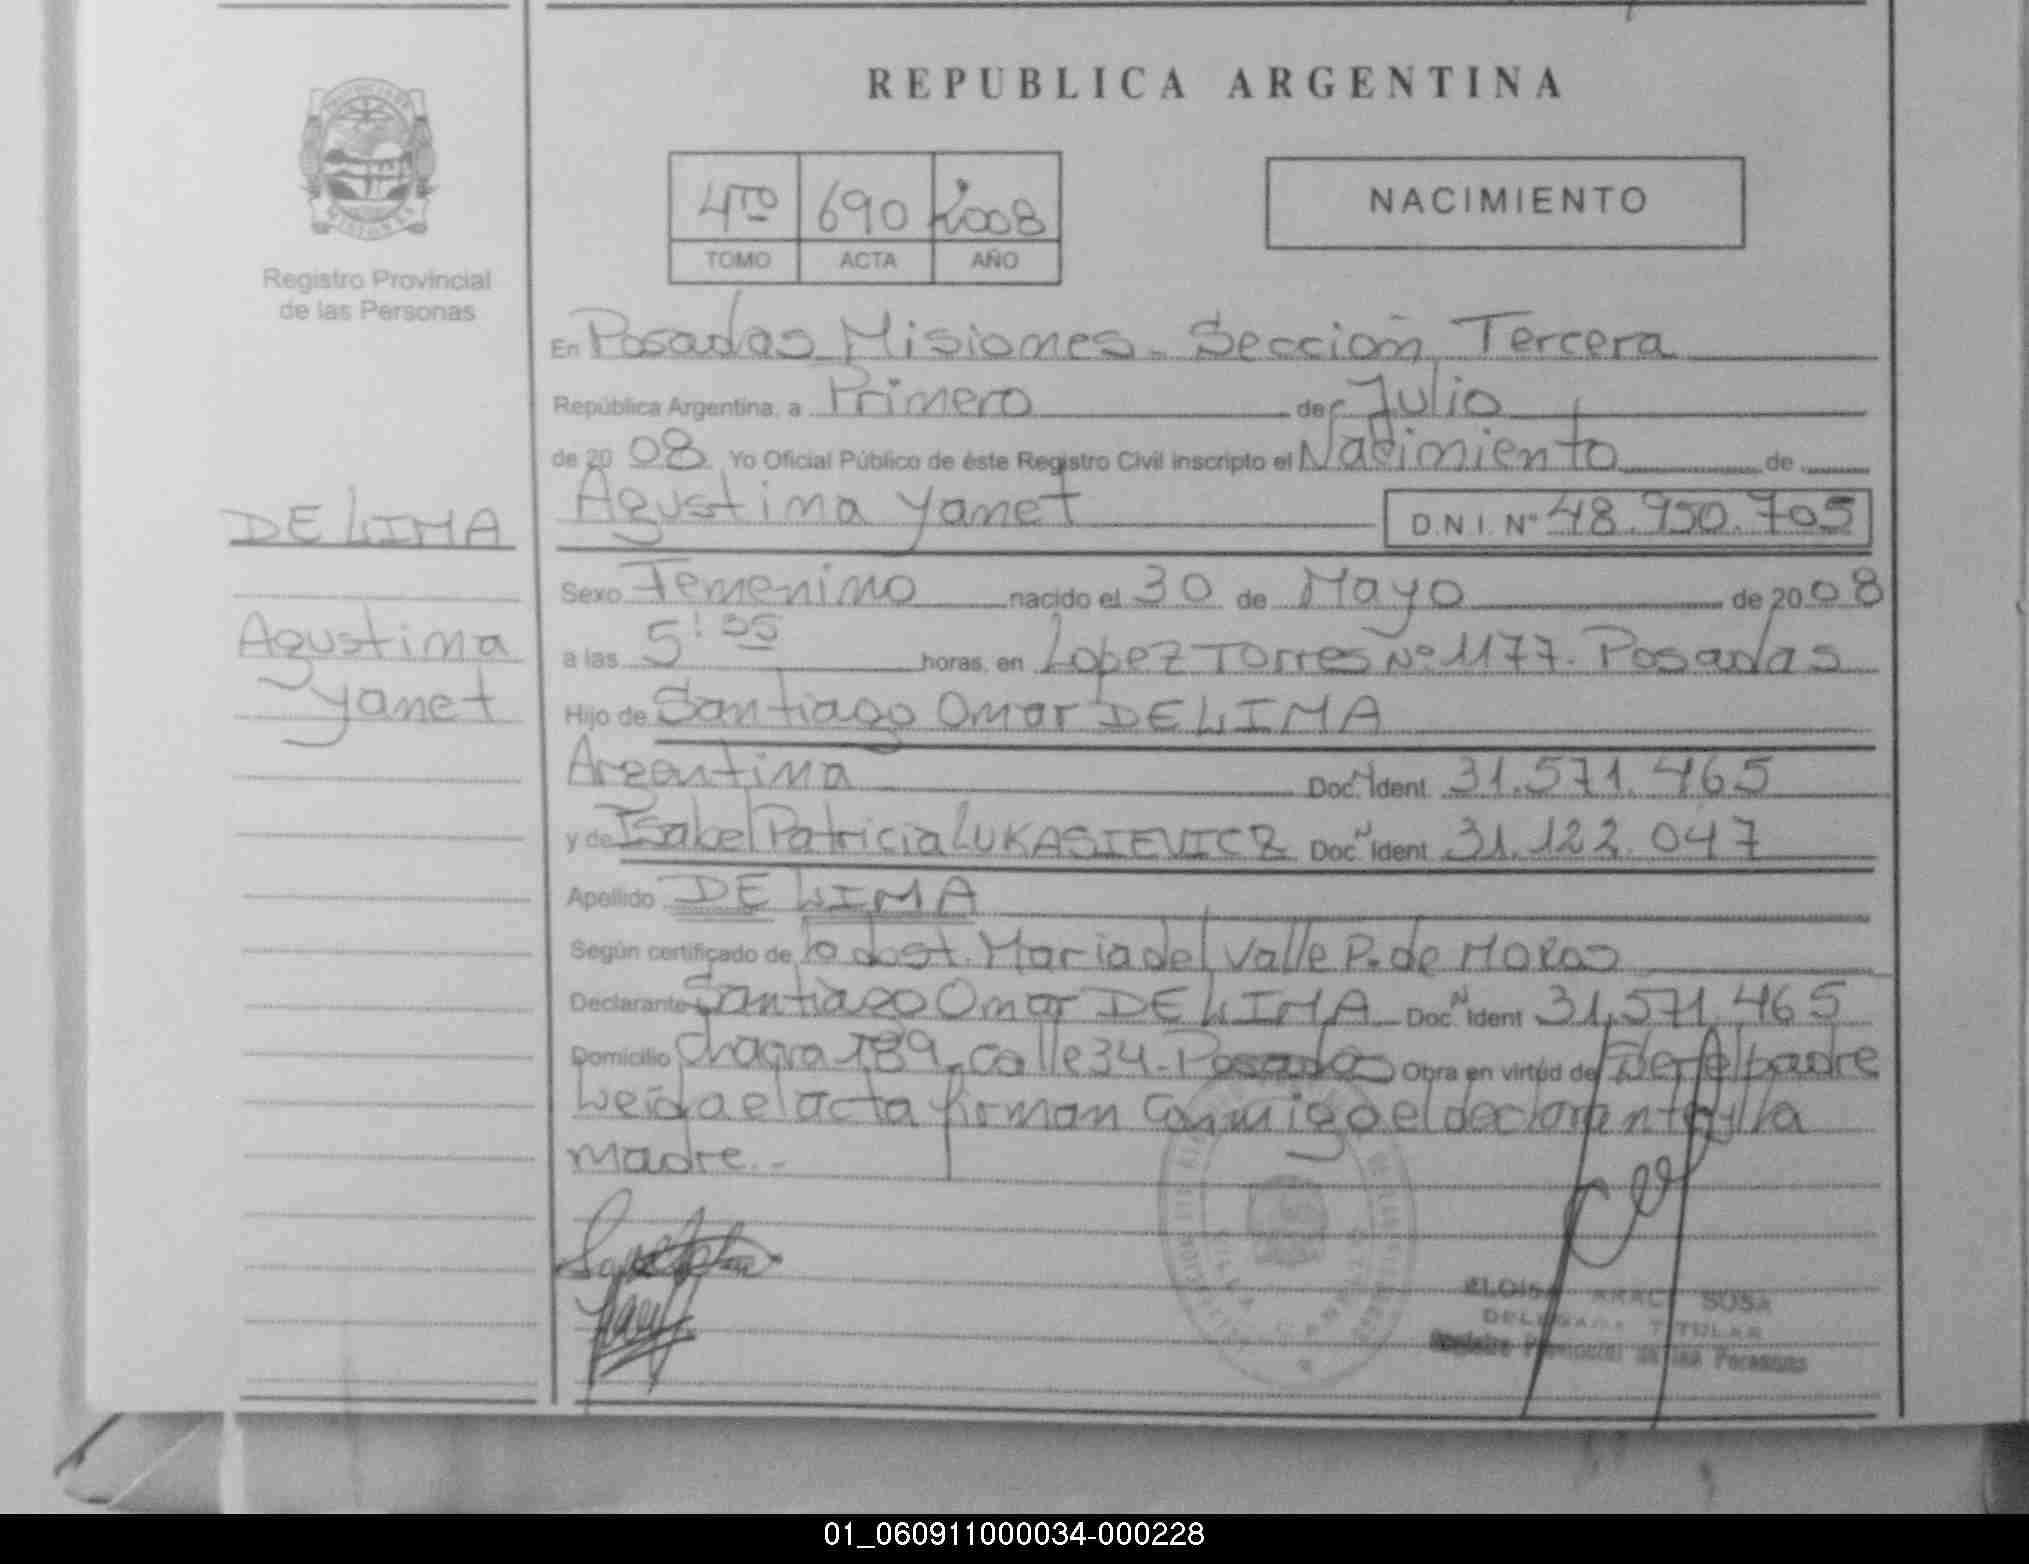 REPUBLICA ARGENTINA
4TO 690 2008
TOMO ACTA AÑO
NACIMIENTO
Registro Provincial
de las Personas
DE LIMA
Agustina
Yanet
En Posadas Misiones - Sección Tercera
República Argentina, a Primero de Julio
de 2008 Yo Oficial Público de éste Registro Civil inscripto el Nacimiento de
Agustina Yanet D.N.I. Nº 48.950.705
Sexo Femenino nacido el 30 de Mayo de 2008
a las 5:55 horas, en Lopez Torres Nº 1177. Posadas
Hijo de Santiago Omar DE LIMA
Argentina Doc. N Ident 31.571.465
y de Isabel Patricia LUKASIEVICZ Doc. N Ident 31.122.047
Apellido DE LIMA
Según certificado de la obst. Maria del Valle P. de
Declarante Santiago Omar DE LIMA Doc. N Ident 31.571.465
Domicilio Chacra 189, calle 34 - Posadas Obra en virtud de Ser el padre
Leída el acta firman conmigo el declarante y la
madre.-
SOSA
DELEGADA TITULAR
Registro Provincial de las Personas
01_060911000034-000228